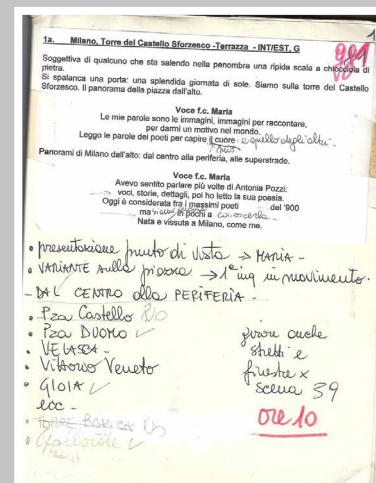 1
981
1a. Milano, Torre del Castello Sforzesco -Terrazza - INT/EST. G
Soggettiva di qualcuno che sta salendo nella penombra una ripida scala a chiocciola di
pietra.
Si spalanca una porta: una splendida giornata di sole. Siamo sulla torre del Castello
Sforzesco. Il panorama della piazza dall'alto.
Voce f.c. Maria
Le mie parole sono le immagini, immagini per raccontare,
per darmi un motivo nel mondo.
Leggo le parole dei poeti per capire il cuore e quello degli altri.
mio
Panorami di Milano dall'alto: dal centro alla periferia, alle superstrade.
Voce f.c. Maria
Avevo sentito parlare più volte di Antonia Pozzi:
voci, storie, dettagli, poi ho letto la sua poesia.
Oggi è considerata fra i massimi poeti del '900
ma in pochi a conoscerla.
Nata e vissuta a Milano, come me.
• presentazione punto di vista → MARIA -
• VARIANTE sulla piazza → 1ª inq in movimento.
- DAL CENTRO alla PERIFERIA -
• Pza Castello
• Pza DUOMO ✓
• VELASCA -
• Vittorio Veneto
• GIOIA ✓
ecc -
girare anche
stretti e
finestre x
scena 39
ore 10